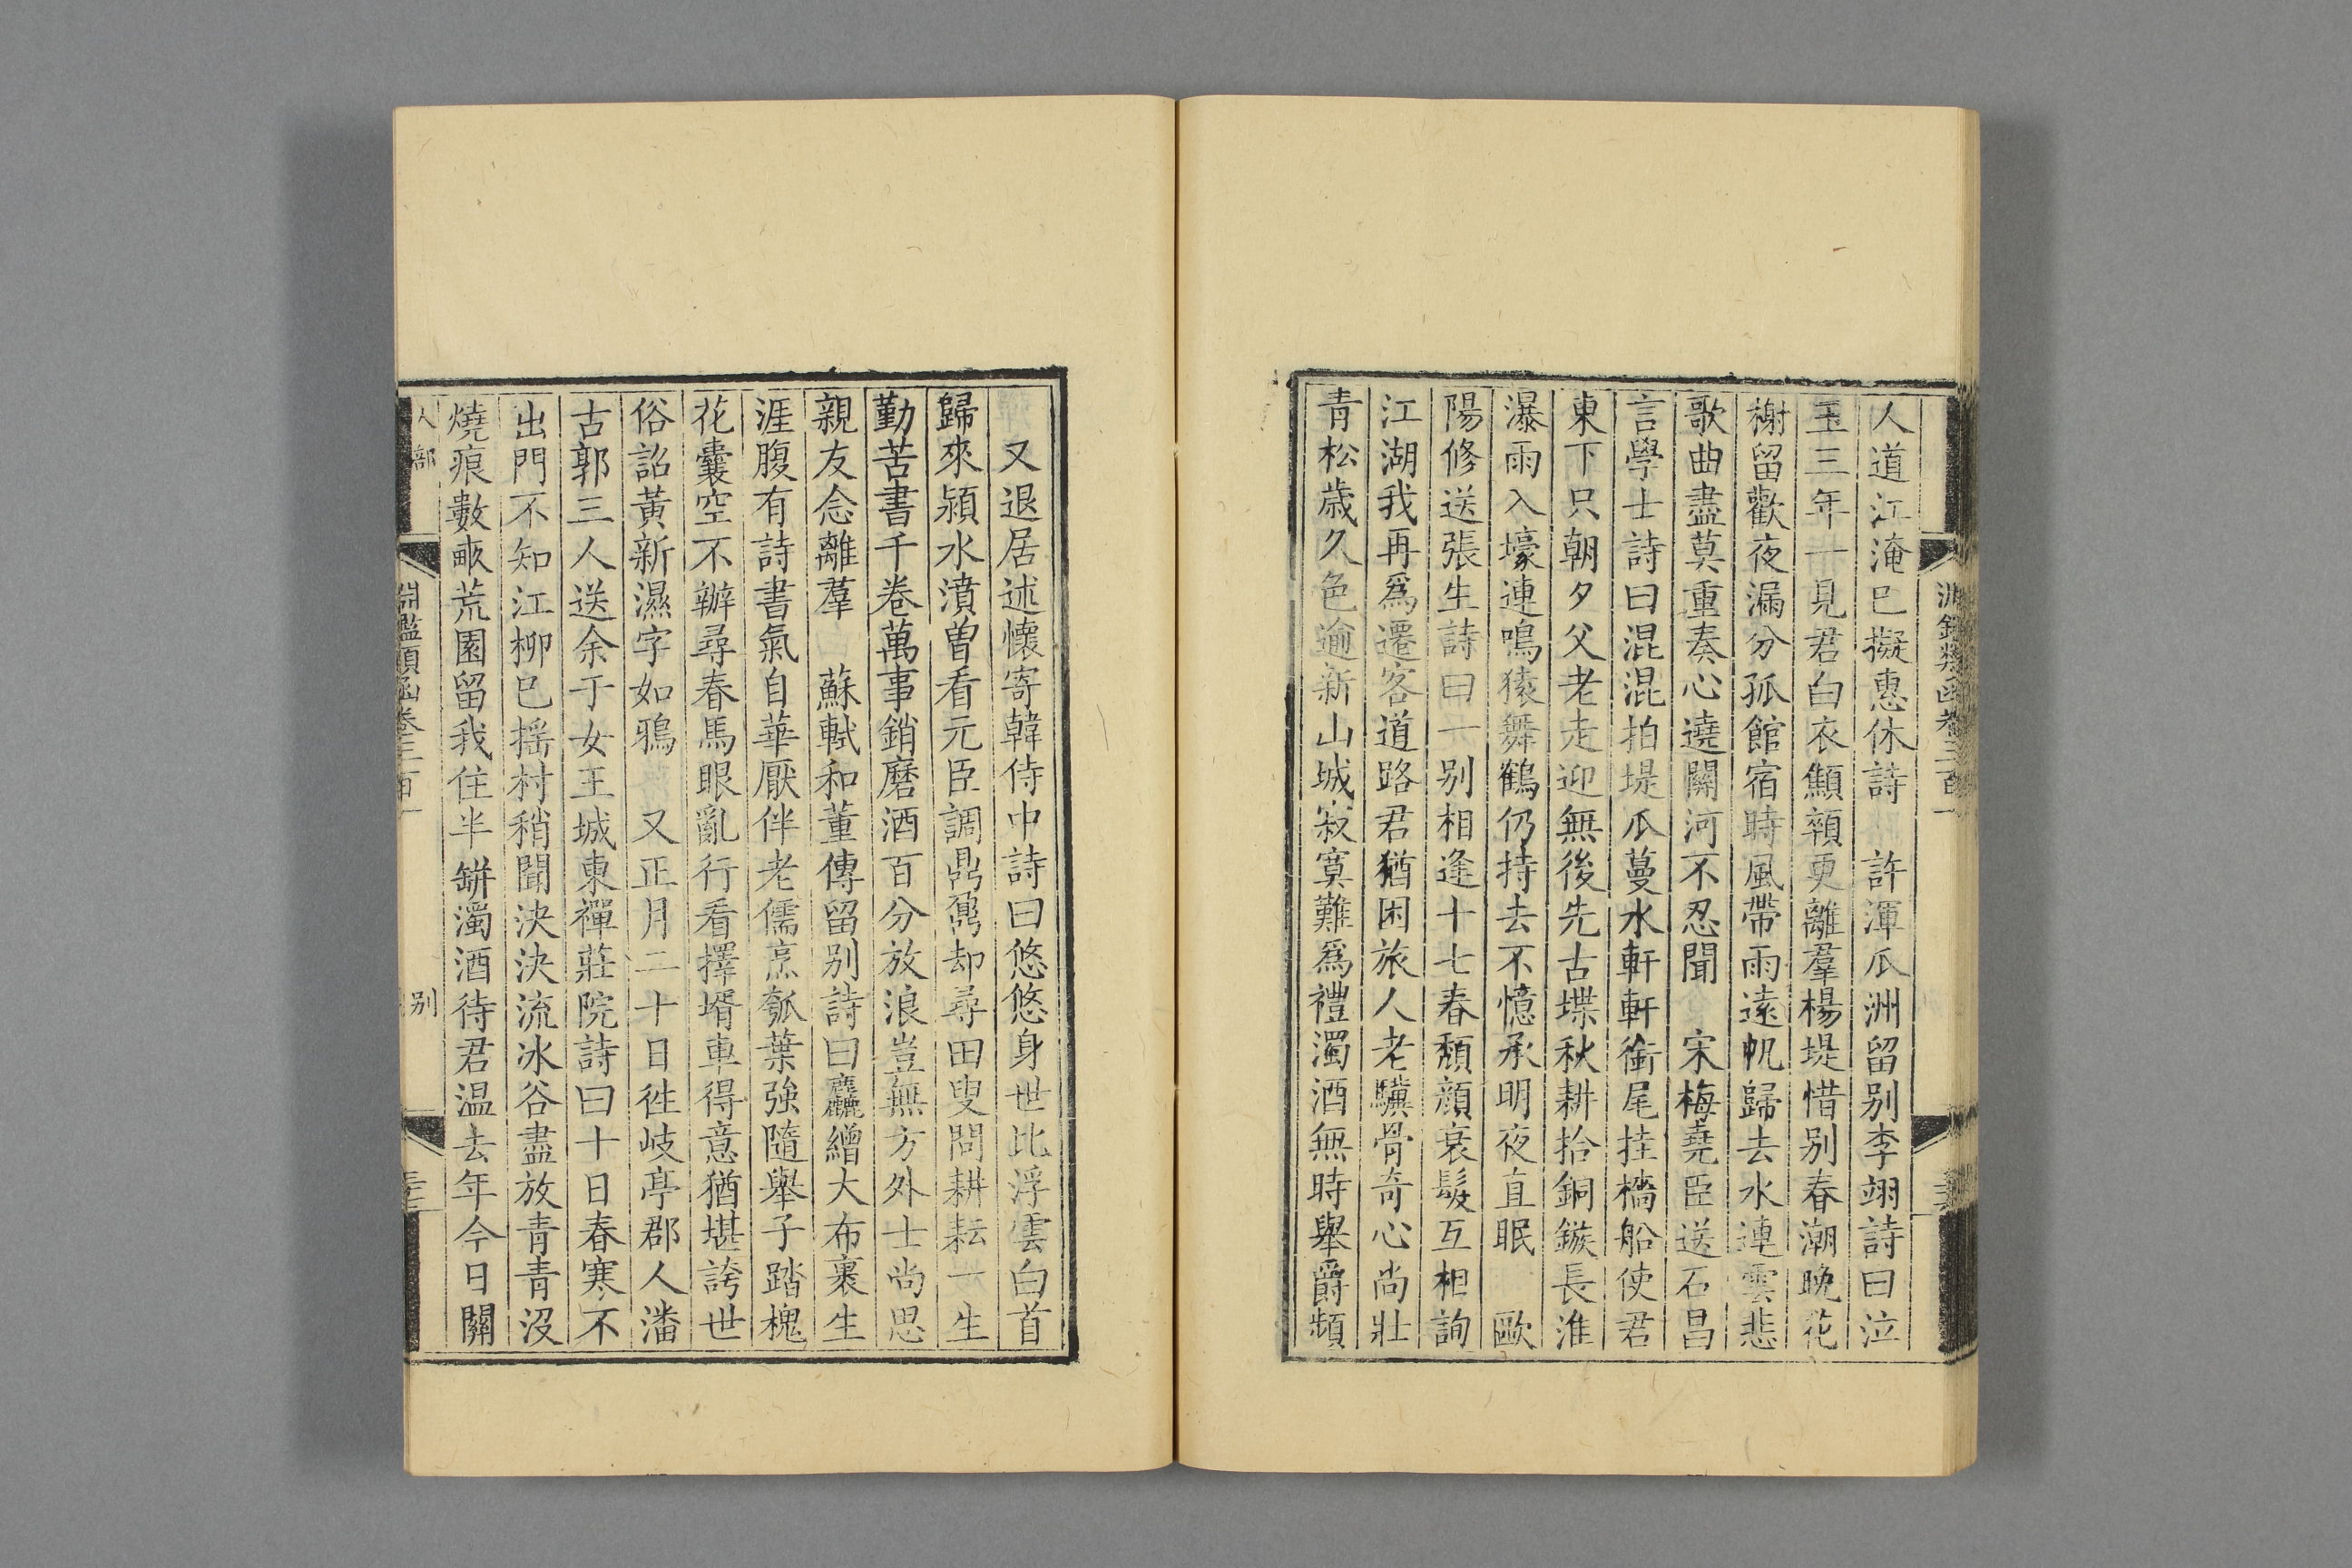 淵鑑類函卷三百一
人道江淹已擬惠休詩　許渾瓜洲留别李翊詩曰泣
玉三年一見君白衣顦顇更離羣楊堤惜别春潮晚花
榭留歡夜漏分孤館宿時風帶雨遠帆歸去水連雲悲
歌曲盡莫重奏心遶關河不忍聞　宋梅堯臣送石昌
言學士詩曰混混拍堤瓜蔓水軒軒銜尾挂檣船使君
東下只朝夕父老走迎無後先古堞秋耕拾銅鏃長淮
瀑雨入壕連鳴猿舞鶴仍持去不憶承明夜直眠　歐
陽修送張生詩曰一别相逢十七春頽顔衰髮互相詢
江湖我再爲遷客道路君猶困旅人老驥骨竒心尚壯
青松歲久色逾新山城寂寞難爲禮濁酒無時舉爵頻
又退居述懷寄韓侍中詩曰悠悠身世比浮雲白首
歸來潁水濆曽看元臣調鼎鼐却尋田叟問耕耘一生
勤苦書千卷萬事銷磨酒百分放浪豈無方外士尚思
親友念離羣　蘇軾和董傳留别詩曰麤繒大布裹生
涯腹有詩書氣自華厭伴老儒烹瓠葉強隨舉子踏槐
花囊空不辦尋春馬眼亂行看擇壻車得意猶堪誇世
俗詔黄新濕字如鴉　又正月二十日徃岐亭郡人潘
古郭三人送余于女王城東禪莊院詩曰十日春寒不
出門不知江柳已摇村稍聞決決流冰谷盡放青青没
燒痕數畝荒園留我住半缾濁酒待君温去年今日關
人部　淵鑑類函卷三百一　别